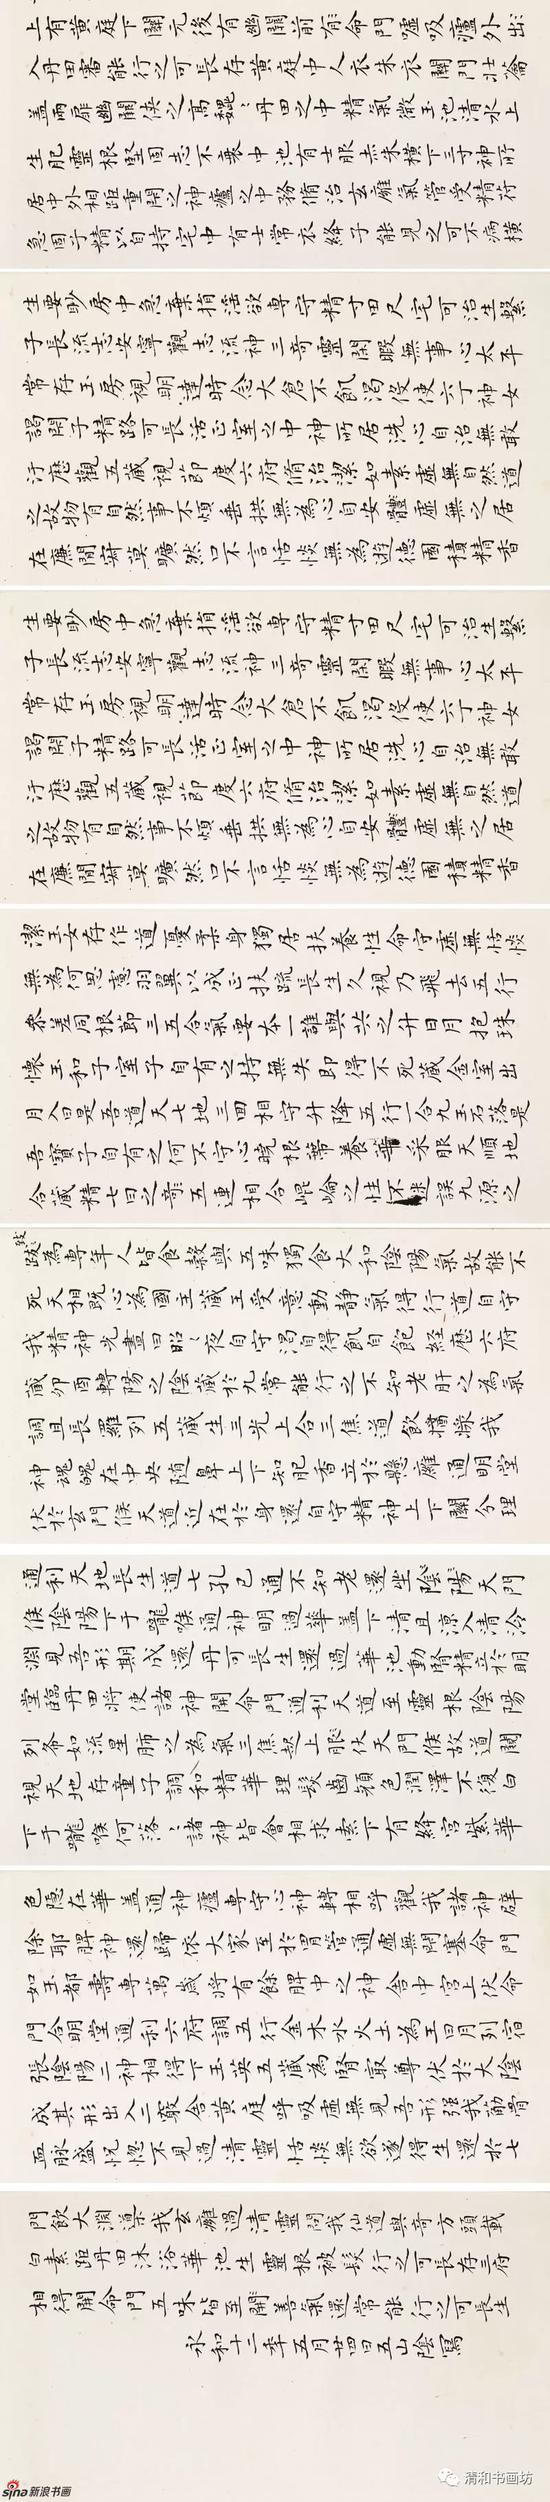 上有黃庭下關元後有幽闕前有命門噓吸廬外出
入丹田審能行之可長存黃庭中人衣朱衣關門壯蘥
蓋兩扉幽闕俠之高巍〻丹田之中精氣微玉池清水上
生肥靈根堅固志不衰中池有士服赤朱橫下三寸神所
居中外相距重閉之神廬之中務脩治玄廱氣管受精苻
急固子精以自持宅中有士常衣絳子能見之可不病橫
生要眇房中急棄捐淫欲專守精寸田尺宅可治生繫
子長流志安寧觀志流神三奇靈閑暇無事心太平
常存玉房視明達時念大倉不飢渴役使六丁神女
謁閉子精路可長活正室之中神所居洗心自治無敢
汙歷觀五藏視節度六府脩治潔如素虛無自然道
之故物有自然事不煩垂拱無為心自安體虛無之居
在廉閒寂莫曠然口不言恬惔無為遊德園積精香
生要眇房中急棄捐淫欲專守精寸田尺宅可治生繫
子長流志安寧觀志流神三奇靈閑暇無事心太平
常存玉房視明達時念大倉不飢渴役使六丁神女
謁閉子精路可長活正室之中神所居洗心自治無敢
汙歷觀五藏視節度六府脩治潔如素虛無自然道
之故物有自然事不煩垂拱無為心自安體虛無之居
在廉閒寂莫曠然口不言恬惔無為遊德園積精香
潔玉女存作道憂柔身獨居扶養性命守虛無恬惔
無為何思慮羽翼以成正扶疏長生久視乃飛去五行
參差同根節三五合氣要本一誰與共之升日月抱珠
懷玉和子室子自有之持無失即得不死藏金室出
月入日是吾道天七地三回相守升降五行一合九玉石落是
吾寶子自有之何不守心曉根蒂養華采服天順地
合藏精七日之奇五連相合崐崘之性不迷誤九源之
跋為專年人皆食穀與五味獨食大和陰陽氣故能不
死天相既心為國主藏王受意動靜氣得行道自守
我精神光晝日昭〻夜自守渴自得飢自飽經歷六府
藏卯酉轉陽之陰藏於九常能行之不知老肝之為氣
調且長羅列五藏生三光上合三焦道飲醬漿我
神魂魄在中央隨鼻上下知肥香立於懸廱通明堂
伏於玄門候天道近在於身還自守精神上下關分理
通利天地長生道七孔已通不知老還坐陰陽天門
候陰陽下于嚨喉通神明過華蓋下清且涼入清泠
淵見吾形期成還丹可長生還過華池動腎精立於明
堂臨丹田將使諸神開命門通利天道至靈根陰陽
列布如流星肺之為氣三焦起上服伏天門候故道闚
視天地存童子調和精華理髮齒顏色潤澤不復白
下于嚨喉何落〻諸神皆會相求索下有絳宮紫華
色隱在華蓋通神廬專守心神轉相呼觀我諸神辟
除耶脾神還歸依大家至於胃管通虛無閉塞命門
如玉都壽專萬歲將有餘脾中之神舍中宮上伏命
門合明堂通利六府調五行金木水火土為王日月列宿
張陰陽二神相得下玉英五藏為腎最尊伏於大陰
成其形出入二竅舍黃庭呼吸虛無見吾形强我筋骨
血脉盛怳惚不見過清靈恬惔無欲遂得生還於七
門飲大淵導我玄雍過清靈問我仙道與奇方頭載
白素距丹田沐浴華池生靈根被髮行之可長存三府
相得開命門五味皆至開善氣還常能行之可長生
永和十二年五月廿四日五山陰寫
sina新浪书画
清和书画坊